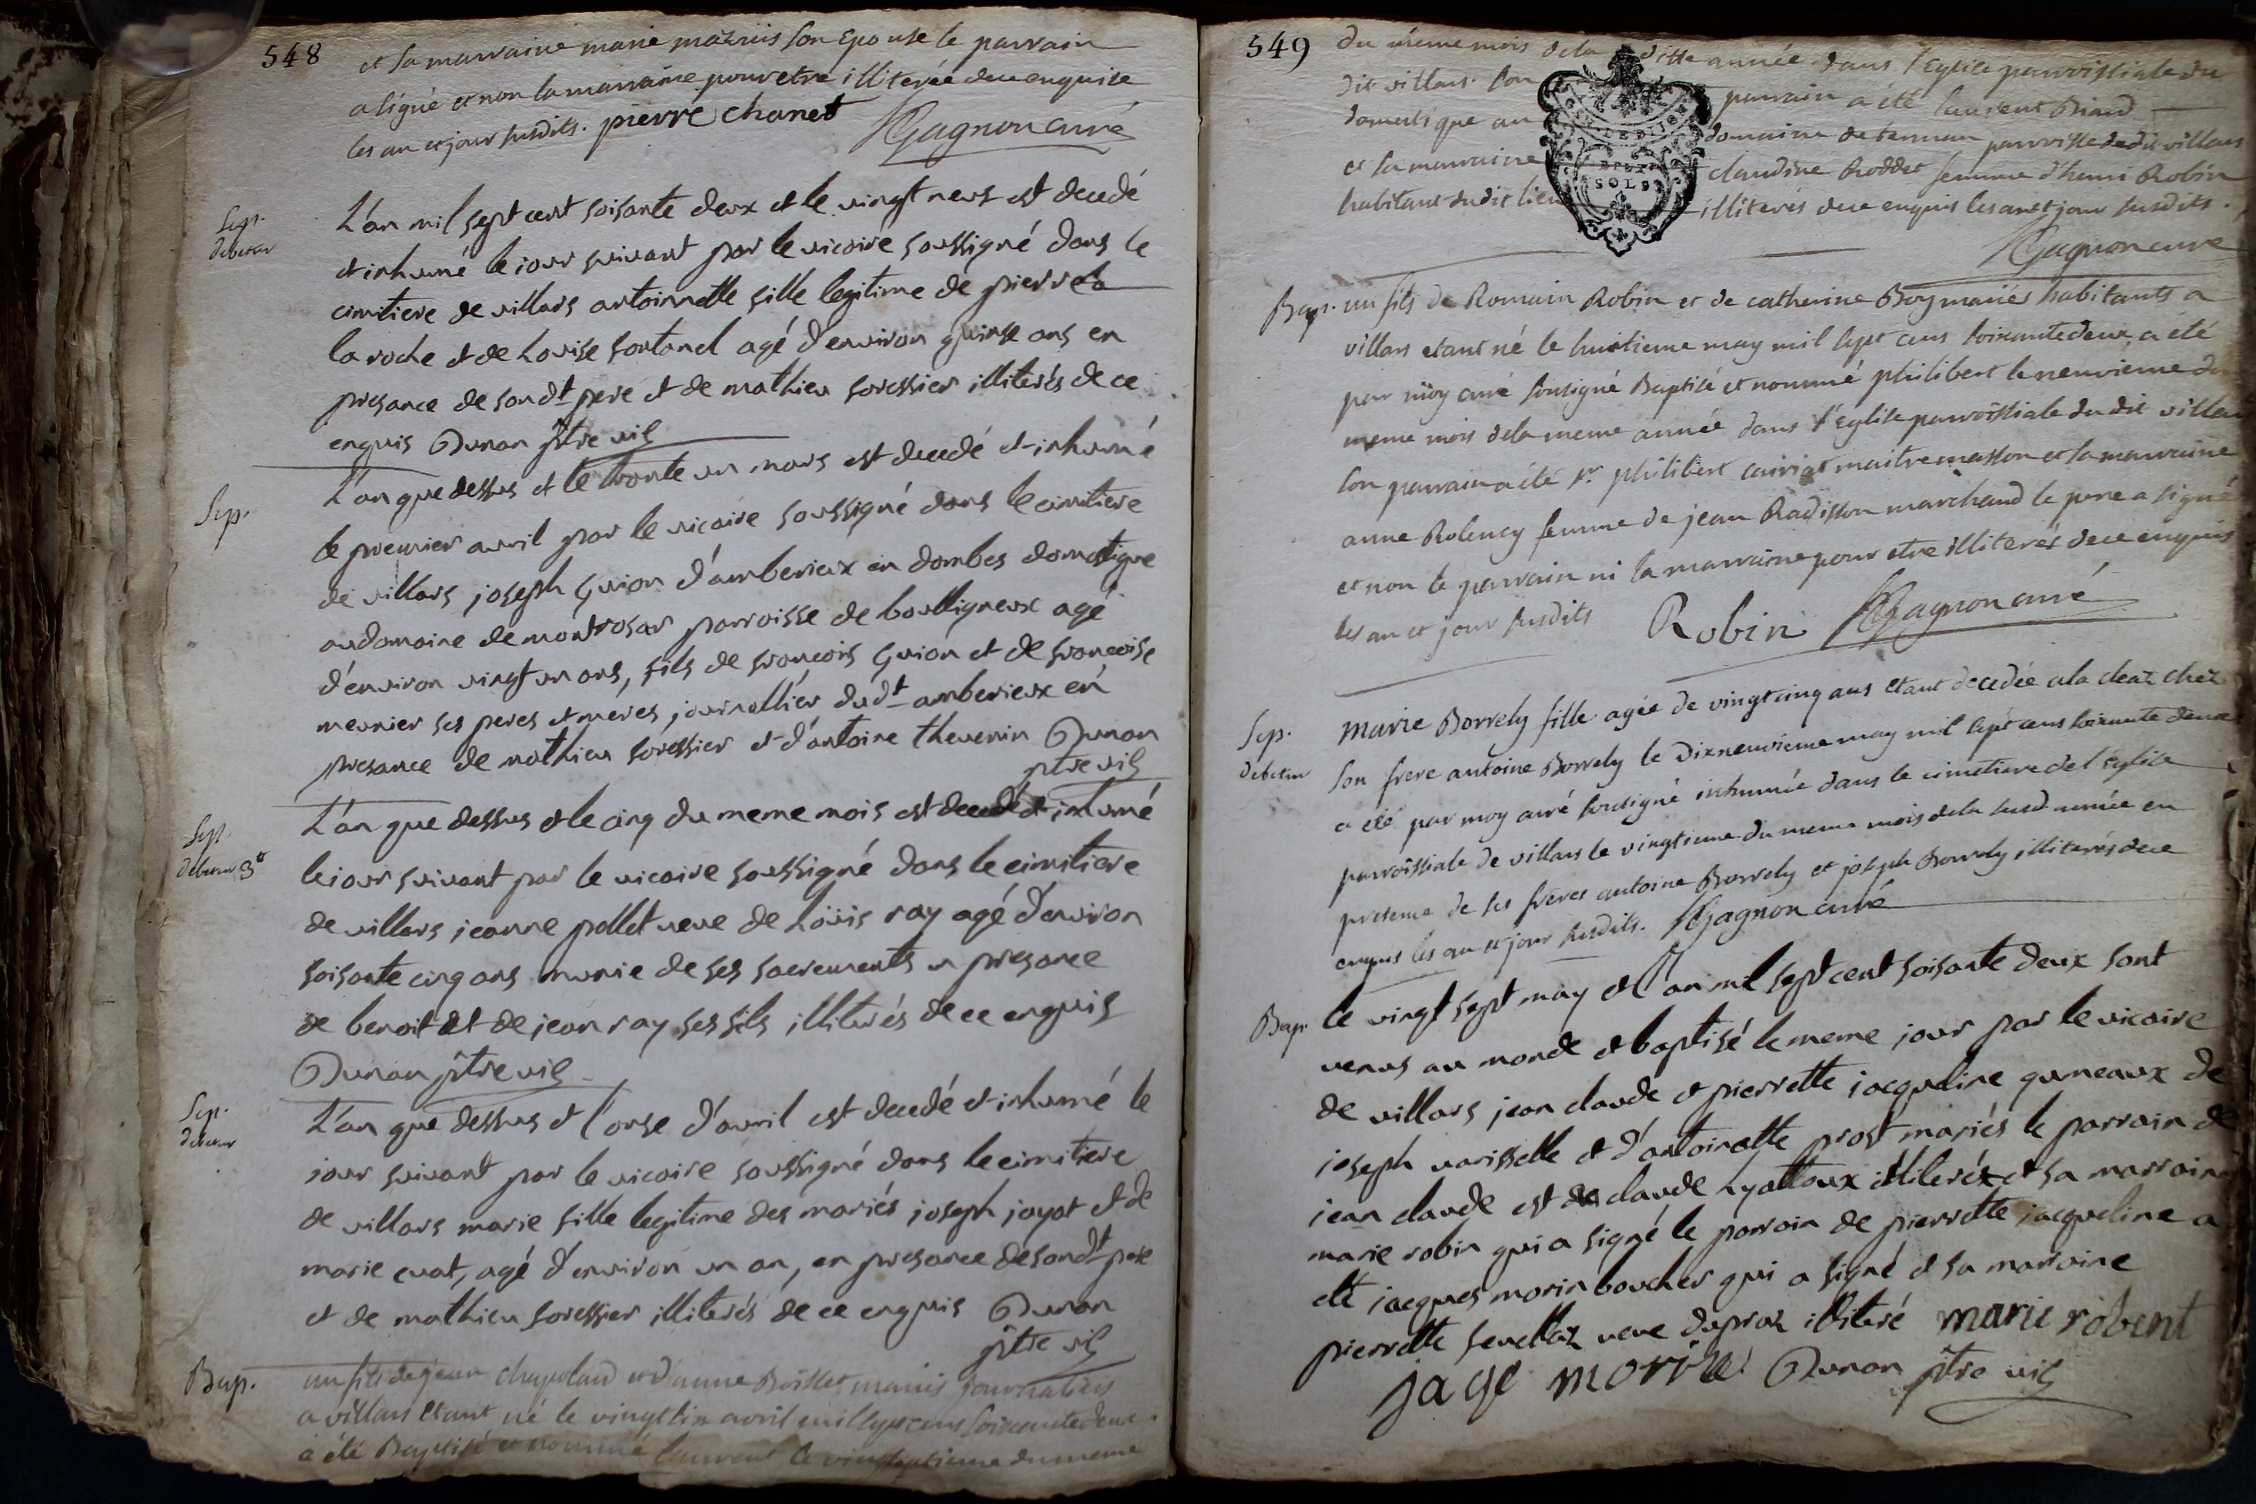 548
et sa marraine marie mazuis son Epouse le parrain
a signé et non la marraine pour etre illiterée de ce enquise
les an et jour susdits. pierre chanet Gagnon curé
Sep.
debetur
L'an mil sept cent soisante deux et le vingt neuf est decedé
et inhumé le jour suivant par le vicaire soussigné dans le
cimitiere de villars antoinette fille legitime de pierre
la roche et de Louise fontanel agé d'environ quinse ans en
presance de sondt pere et de mathieu foressier illiterés de ce
enquis Dunan ptre vic
Sep.
L'an que dessus et le trente un mars est decedé et inhumé
le premier avril par le vicaire soussigné dans le cimitiere
de villars joseph guion d'amberieux en dombes domestique
au domaine de montrosar parroisse de boulligneux agé
d'environ vingt un ans, fils de francois guion et de francoise
meunier ses peres et meres, journallier dudt amberieux en
presance de mathieu foressier et d'antoine thevenin Dunan
ptre vic
Sep.
debetur
L'an que dessus et le cinq du meme mois est decedé et inhumé
le jour suivant par le vicaire soussigné dans le cimitiere
de villars jeanne pollet veve de Loüis ray agé d'environ
soisante cinq ans munie de ses sacrements en presance
de benoit et de jean ray ses fils illiterés de ce enquis
Dunan ptre vic
Sep.
debetur
L'an que dessus et l'onse d'avril est decedé et inhumé le
jour suivant par le vicaire soussigné dans le cimitiere
de villars marie fille legitime des mariés joseph joyat et de
marie cuat, agé d'environ un an, en presance de sondt pere
et de mathieu foressier illiterés de ce enquis Dunan
ptre vic
Bap.
un fils de jean chapoland et d'anne Boillet mariés journaliers
a villars etant né le vingt six avril mil sept cens soixante deux
a été Baptisé et nommé laurent le vingt septieme du meme
549
du meme mois de la ditte année dans l'Eglise parroissiale du
dit villars. son parrain a été laurent Briand
domestique au domaine de parroisse du dit villars
et sa marraine claudine Roddet femme d'henri Robin
habitant du dit lieu illiterés de ce enquis les an et jour susdits.
SOLS
Gagnon curé
Bap.
un fils de Romain Robin et de catherine Boy mariés habitants a
villars etant né le huitieme may mil sept cens soixante deux a été
par moy curé sousigné Baptisé et nommé philibert le neuvieme du
meme mois de la meme année dans l'Eglise parroissiale du dit villars
son parrain a été sr. philibert cairiat maitre masson et sa marraine
anne Rolency femme de jean Radisson marchand le pere a signé
et non le parrain ni la marraine pour etre illiterés de ce enquis
les an et jour susdits Robin Gagnon curé
Sep.
debetur
marie Borrely fille agée de vingt cinq ans etant decedée a la cleaz chez
son frere antoine Borrely le dixneuvieme may mil sept cens soixante deux
a été par moy curé sousigné inhumée dans le cimetiere de l'Eglise
parroissiale de villars le vingtieme du meme mois de la susd année en
presence de ses freres antoine Borrely et joseph Borrely illiterés de ce
enquis les an et jour susdits. Gagnon curé
Bap.
le vingt sept may et l'an mil sept cent soisante deux sont
venus au monde et baptisé le meme jour par le vicaire
de villars jean claude et pierrette jacqueline gumeaux de
joseph varisselle et d'antoinette prost mariés le parrain de
jean claude est claude hyattoux illiteré et sa marraine
marie robin qui a signé le parrain de pierrette jacqueline a
été jacques morin boucher qui a signé et sa marraine
pierrette fenellaz veve dupraz illiteré marie robent
jaqe morin Dunan ptre vic